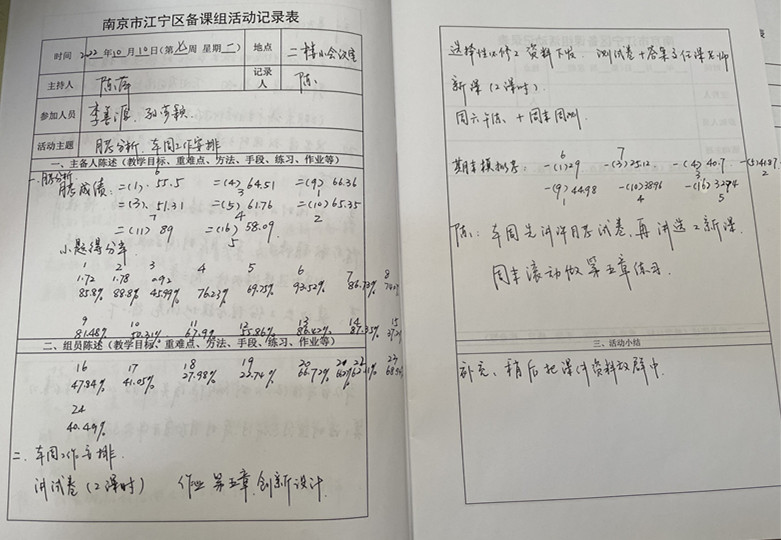 南京市江宁区备课组活动记录表
时间 2022年10月10日(第七周 星期一) 地点 二楼小会议室
主持人 陈萍 记录人 陈
参加人员 李善源
活动主题 月考分析、本周工作安排
一、主备人陈述（教学目标、重难点、方法、手段、练习、作业等）
一.月考分析
月考成绩: 二(1). 55.5 二(4) 64.51 二(9) 66.36
6 3 1
二(3). 51.31 二(5) 61.76 二(10) 65.35
7 4 2
二(11) 89 二(16) 58.09
5
小题得分率
1 2 3 4 5 6 7 8
1.72 1.78 0.92
85.8% 88.8% 45.99% 76.23% 69.75% 93.52% 86.73%
9 10 11 12 13 14 15
81.48% 50.31% 67.9% 55.86% 86.42% 87.35%
二、组员陈述（教学目标、重难点、方法、手段、练习、作业等）
16 17 18 19 20 22 23
47.84% 41.05% 27.98% 22.74% 66.72%
24
40.49%
二、本周工作安排
讲试卷(2课时) 作业 第五章 创新设计
选择性必修2 资料下发. 测试卷+答案 任课老师
新课(2课时)
周六午练、+周末周测
期末模拟考: 6 7
一(1)29 一(3)25.12 一(4) 40.7
3
一(9) 44.98 一(10)38.96 一(16)
1 4 5
陈: 本周先讲评月考试卷, 再讲选2新课.
周末滚动做第五章练习.
三、活动小结
补充、稍后把课件资料放群中.